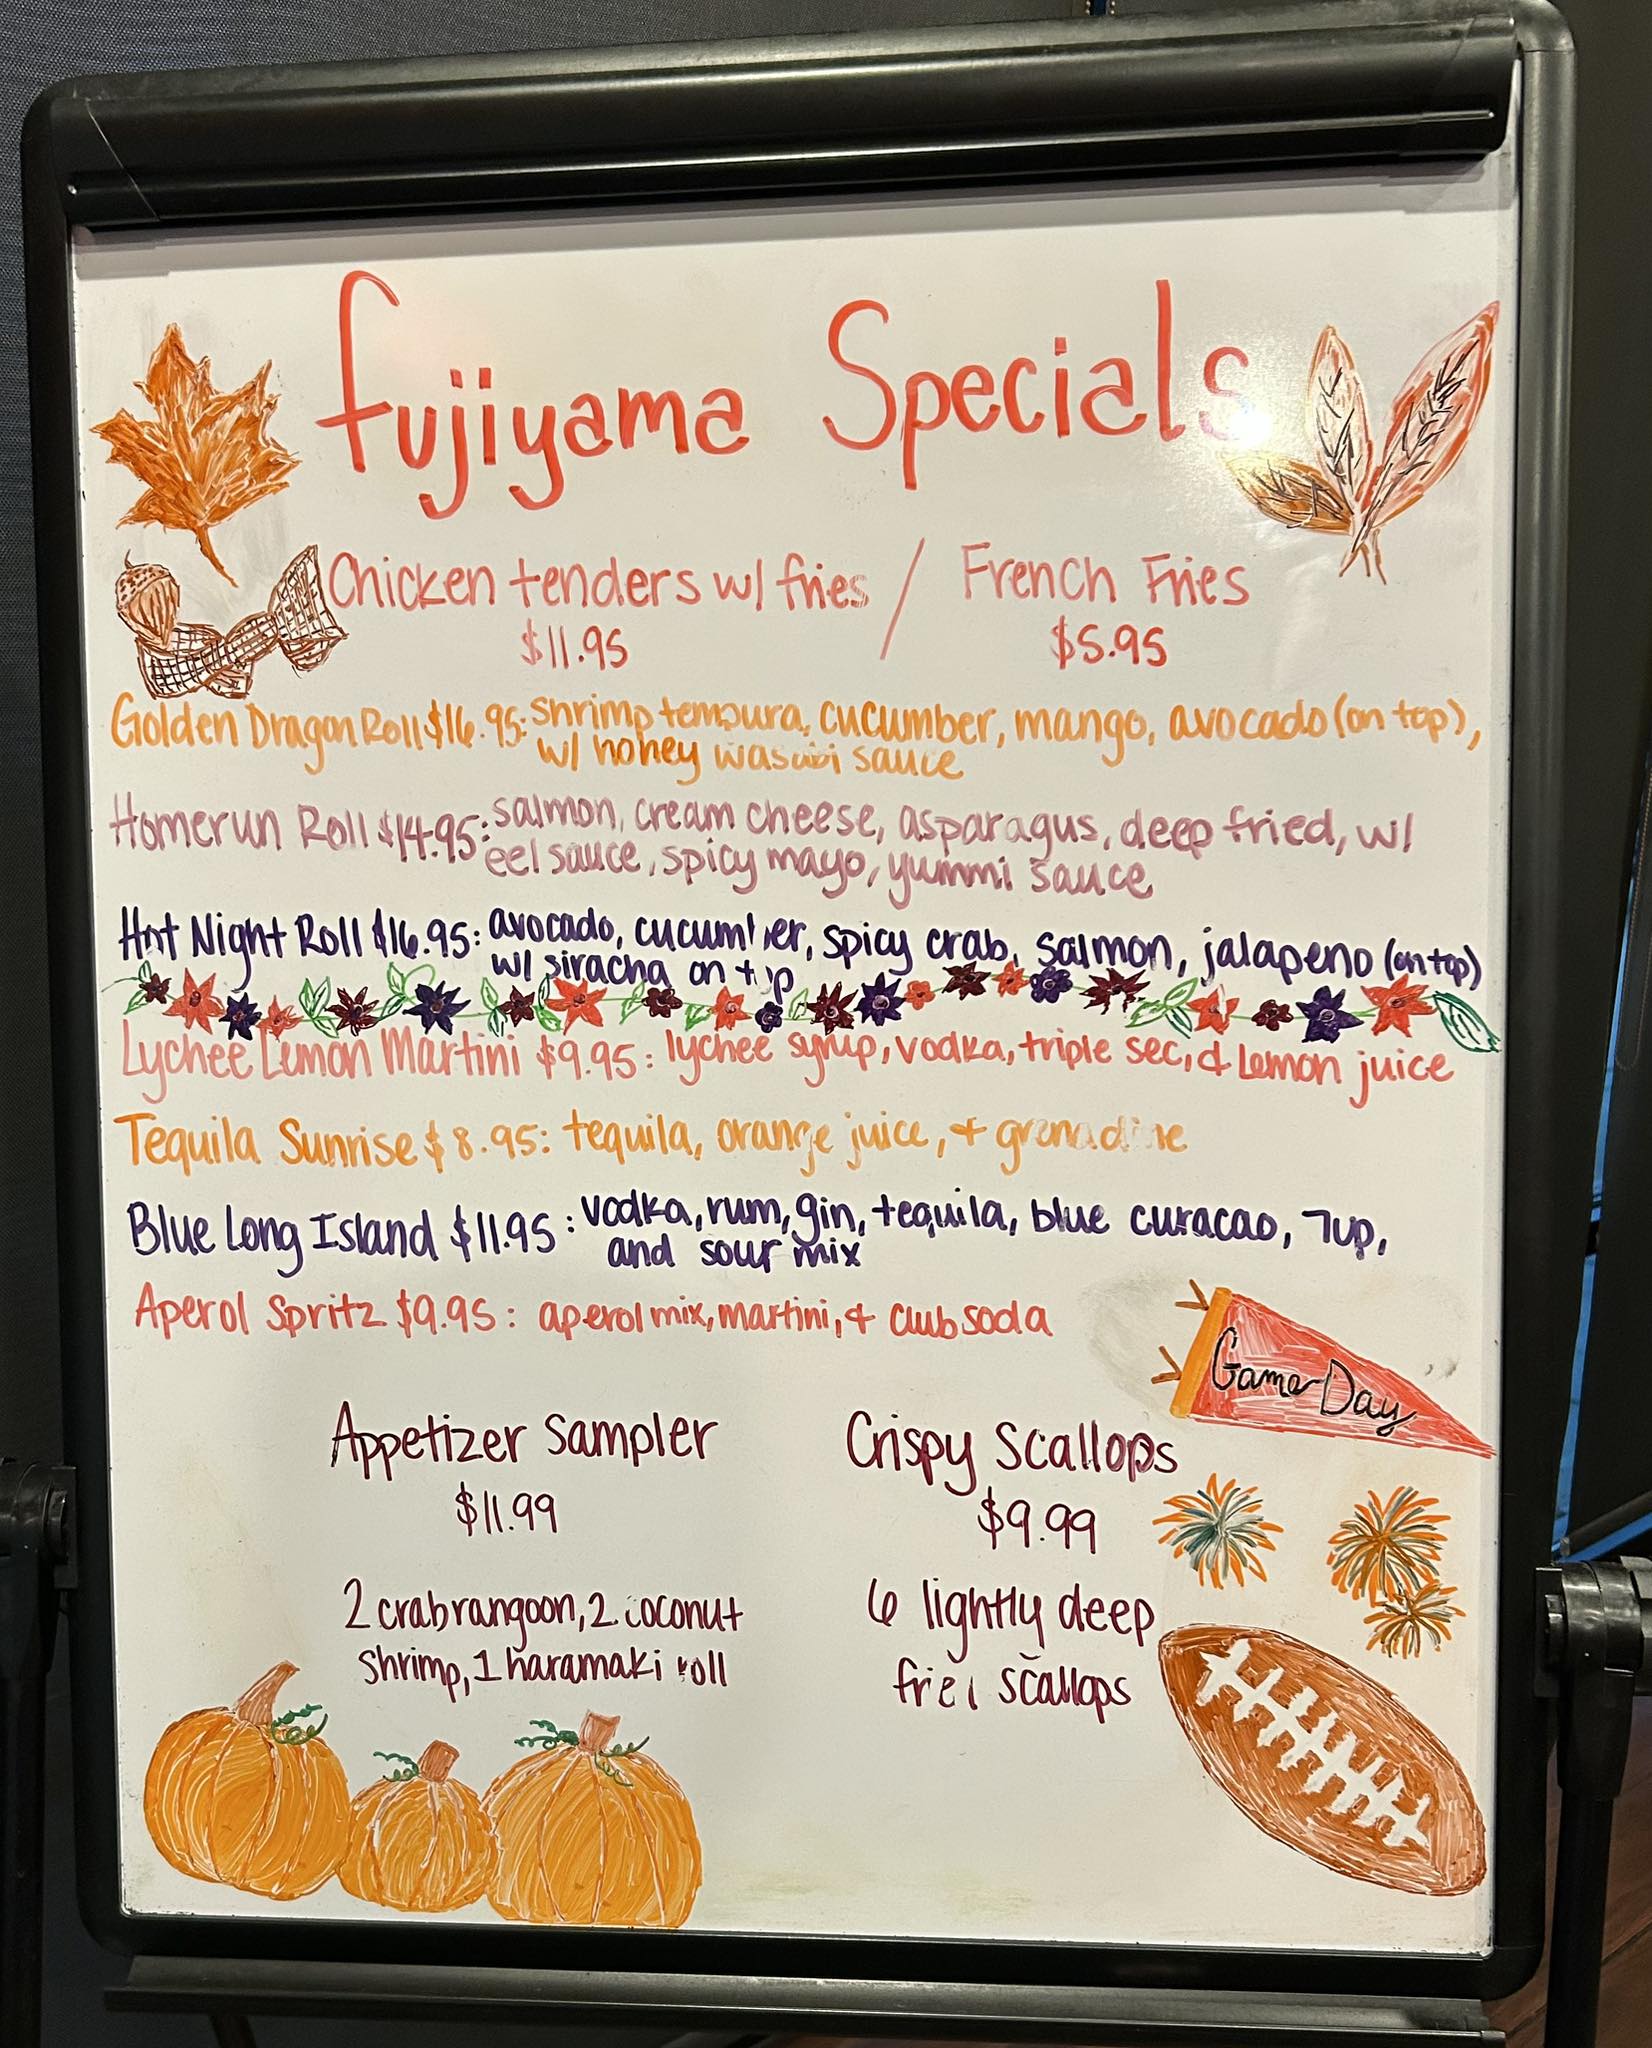 fujiyama Specials
Chicken tenders w/ fries / French Fries
$11.95 $5.95
Golden Dragon Roll $16.95: shrimp tempura, cucumber, mango, avocado (on top),
w/ honey wasabi sauce
Homerun Roll $14.95: salmon, cream cheese, asparagus, deep fried, w/
eel sauce, spicy mayo, yummi sauce
Hot Night Roll $16.95: avocado, cucumber, spicy crab, salmon, jalapeno (on top)
w/ siracha on top
Lychee Lemon Martini $9.95: lychee syrup, vodka, triple sec, & Lemon juice
Tequila Sunrise $8.95: tequila, orange juice, + grenadine
Blue Long Island $11.95: vodka, rum, gin, tequila, blue curacao, 7up,
and sour mix
Aperol Spritz $9.95: aperol mix, martini, & club soda
Game Day
Appetizer Sampler
$11.99
2 crab rangoon, 2 coconut
shrimp, 1 haramaki roll
Crispy Scallops
$9.99
6 lightly deep
fried scallops